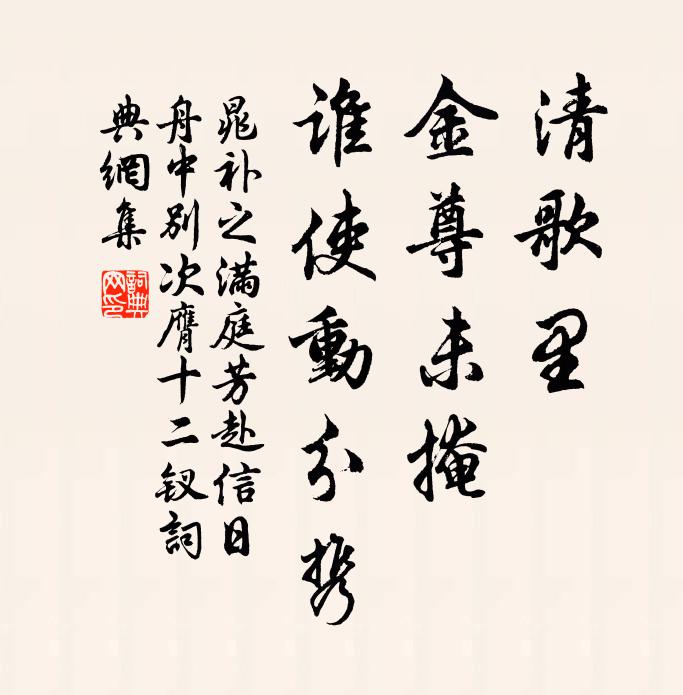 清歌里
金尊未掩
谁使動分携
晁补之满庭芳赴信日
舟中别次膺十二钗詞
典網集
詞典網印